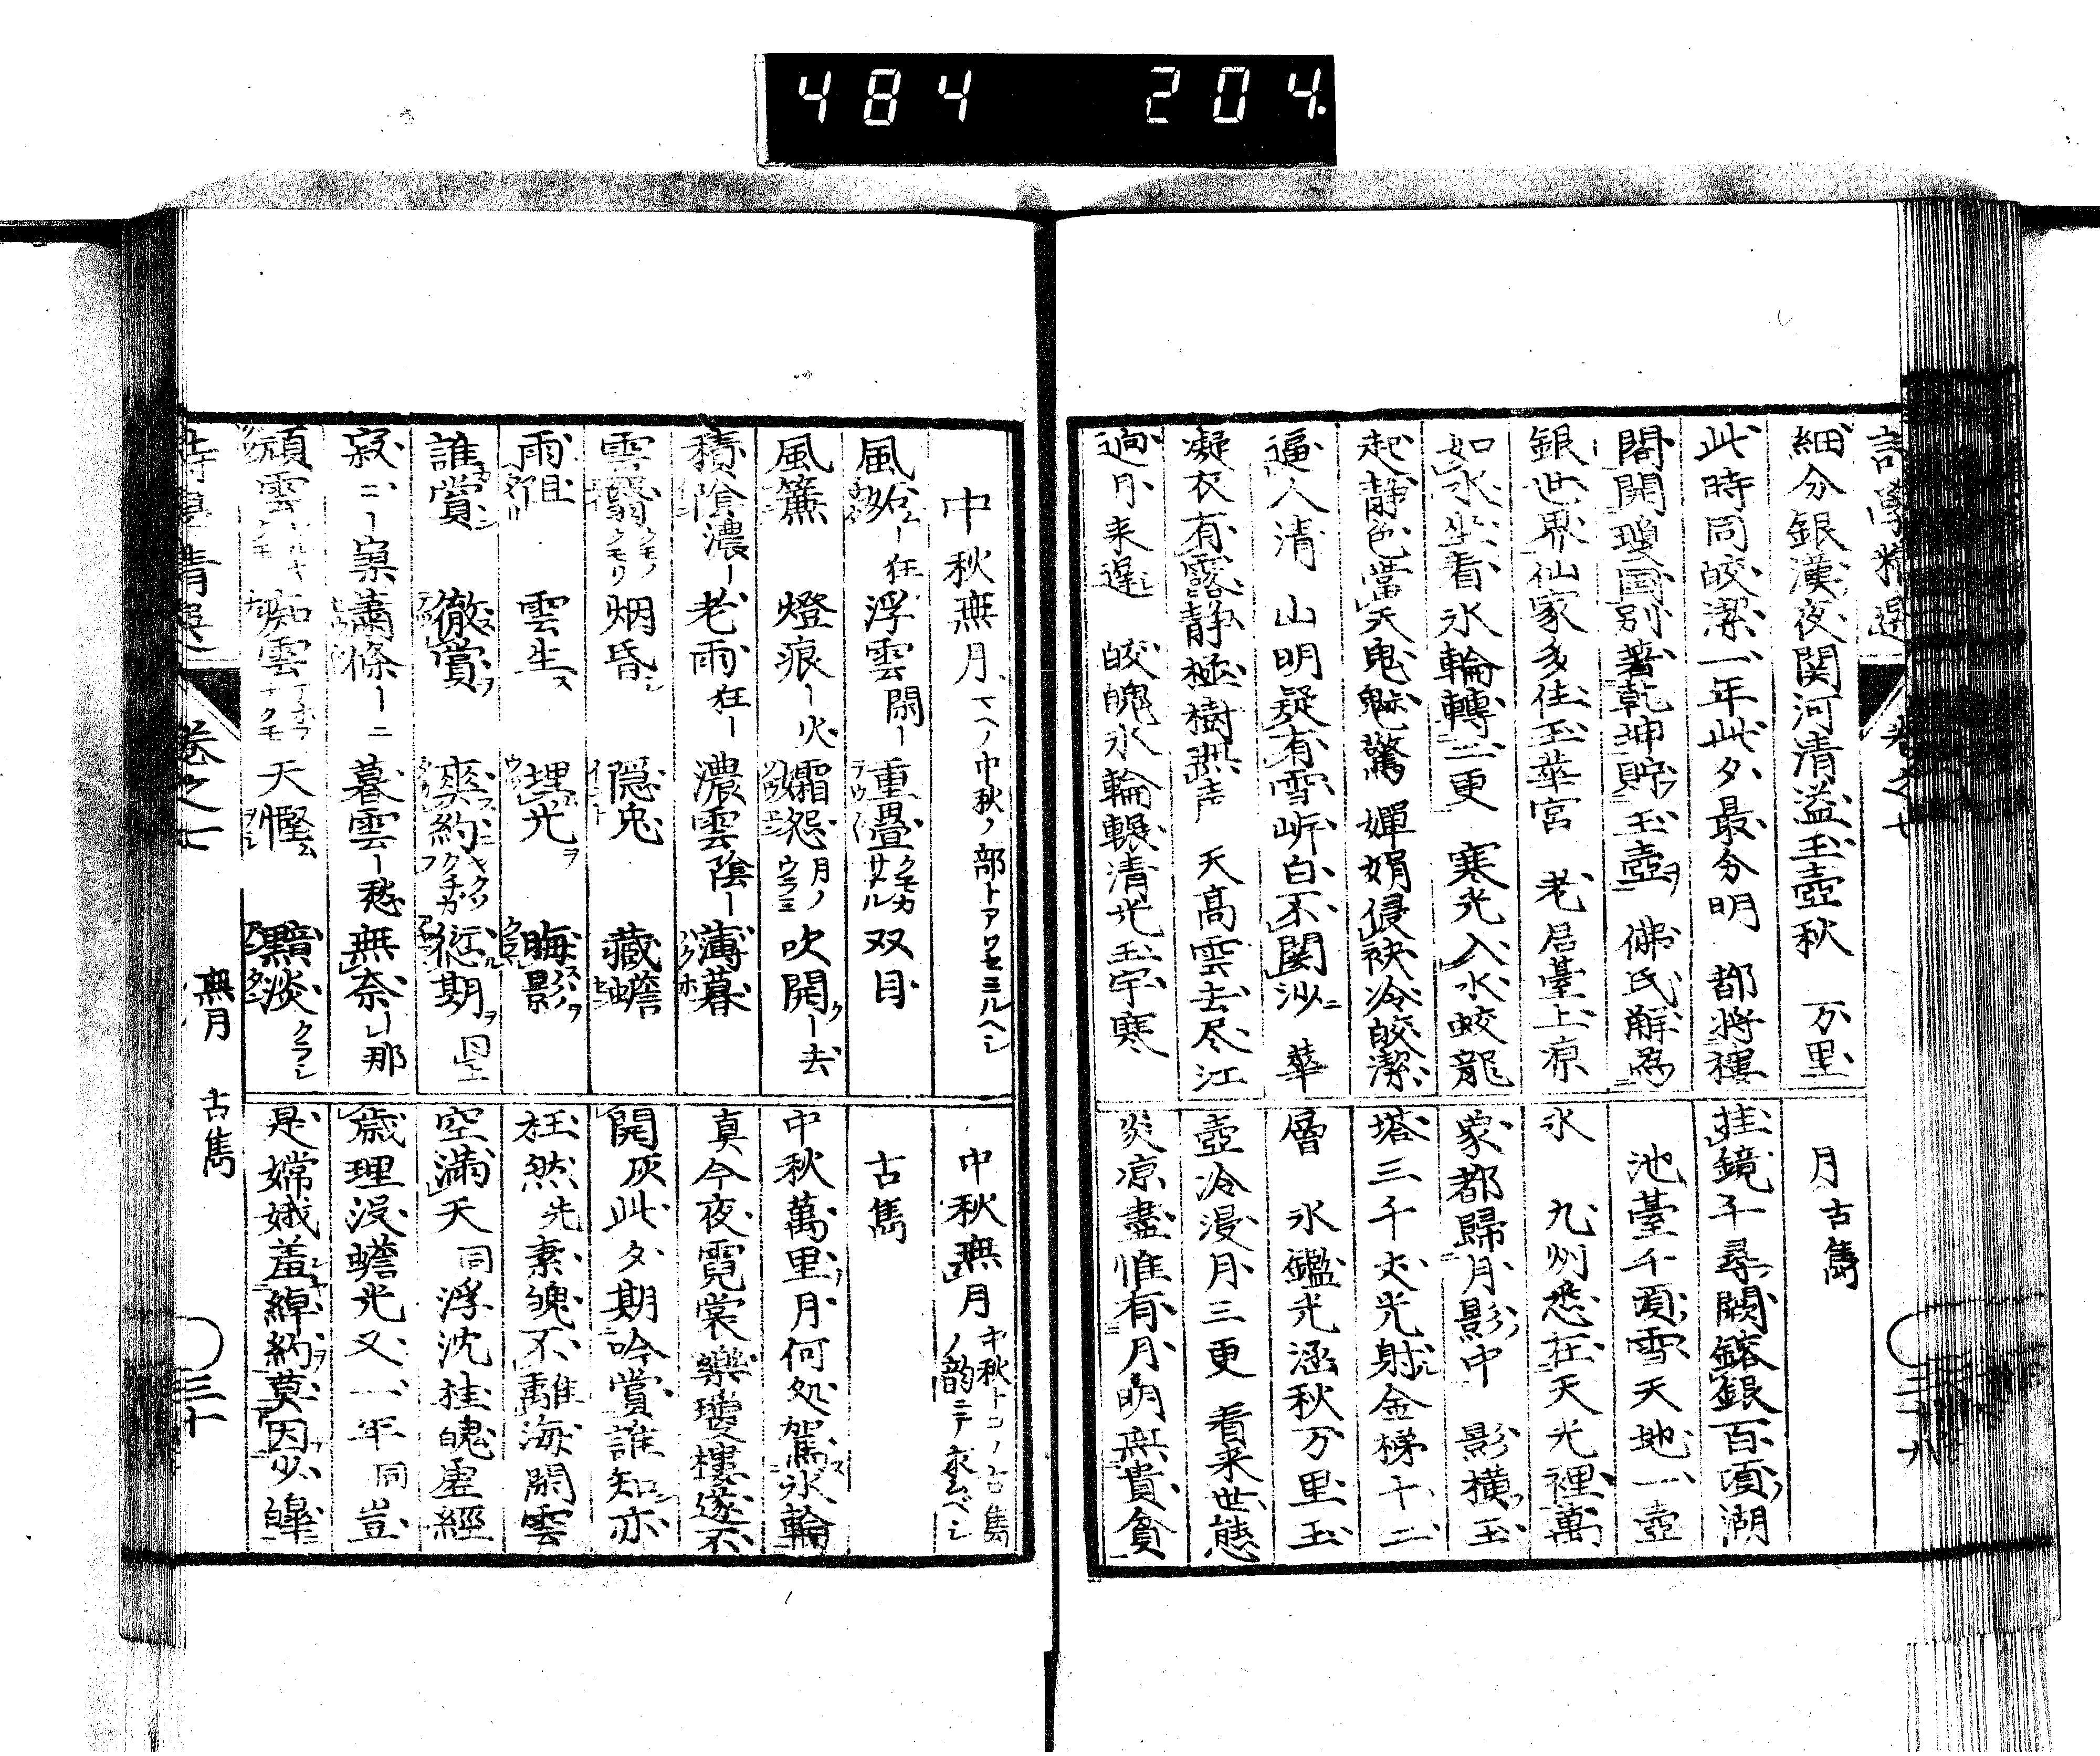 484 204
細分銀漢夜関河清溢玉壺秋 万里
此時同皎潔一年此夕最分明 都将瓊
閣開瓊国別著乾坤貯玉壺 佛氏解為
銀世界仙家多住玉華宮 老居臺上凉
如水坐看氷輪轉二更 寒光入水蛟龍
起静色當天鬼魅驚 嬋娟侵袂冷皎潔
逼人清 山明疑有雪岸白不関沙 華
凝衣有露静極樹無声 天高雲去尽江
迥月来遅 皎魄氷輪輾清光玉宇寒
月古雋
挂鏡千尋闕鎔銀百頃湖
池臺千頃雪天地一壺
氷 九州悉在天光裡萬
象都歸月影中 影横玉
塔三千丈光射金梯十二
層 氷鑑光涵秋万里玉
壺冷浸月三更 看来世態
炎凉盡惟有月明無貴貧
中秋無月 マヘノ中秋ノ部トアワセミルヘシ
風妬ー狂 浮雲閑ー 重畳 双目
風簾 燈痕ー火 孀怨月ノウラミ 吹開ー去
積陰濃ー 老雨狂ー 濃雲陰ー 薄暮
雲翳クモリ 烟昏 隠兎 藏蟾
雨阻 雲生 埋光 晦影
誰賞 徹賞 爽約 愆期
寂ニー寞 蕭條ーニ 暮雲ー愁 無奈ー那
頑雲 痴雲 天慳 黯淡クラシ
中秋無月 中秋トコノ古雋ノ韵ニテ求ムベシ
古雋
中秋萬里月何処駕氷輪
真今夜霓裳樂瓊樓遂不
開灰此夕期吟賞誰知亦
枉然先素魄不離海閑雲
空満天 同浮沈挂魄虚經
歳理没蟾光又一年 同豈
是嫦娥羞綽約莫因少皞
巻之七 無月 古雋 三十